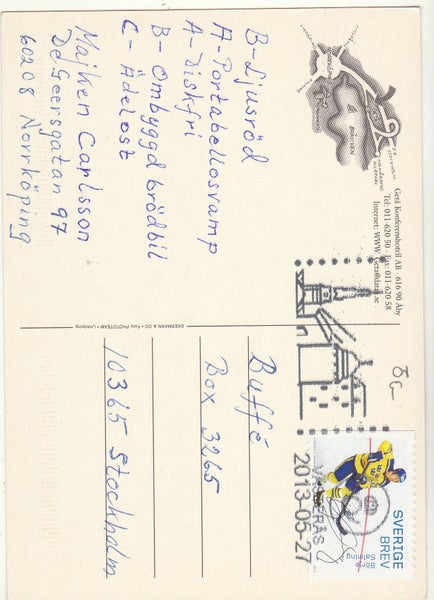 B - Ljusröd
A - Portabellosvamp
A - Diskfri
B - Ombyggd brödbil
C - Ädelost
Majken Carlsson
De Geersgatan 97
60208 Norrköping
BRÅVIKEN
Getå Konferenshotell AB · 616 90 Åby
Tel: 011-620 50 · Fax: 011-620 58
EKERMANN & CO • Foto: PHOTOTEAM • Linköping
Buffé
Box 3265
10365 Stockholm
VÄSTERÅS
2013-05-27
SVERIGE
BREV
Börje
Salming